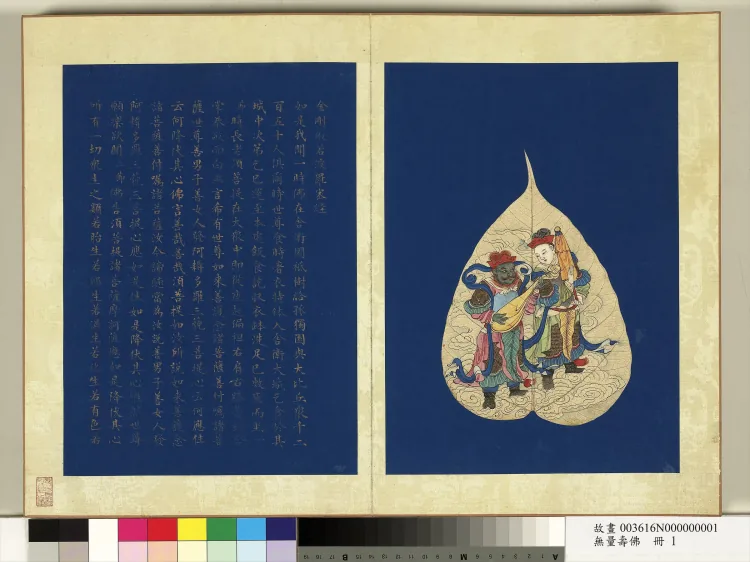 金剛般若波羅蜜經
如是我聞一時佛在舍衛國祇樹給孤獨園與大比丘眾千二
百五十人俱爾時世尊食時著衣持鉢入舍衛大城乞食於其
城中次第乞已還至本處飯食訖收衣鉢洗足已敷座而坐
時長老須菩提在大眾中即從座起偏袒右肩右
掌恭敬而白 言希有世尊如來善護念諸菩薩善付囑諸菩
薩世尊善男子善女人發阿耨多羅三藐三菩提心云何應住
云何降伏其心佛言善哉善哉須菩提如汝所說如來善護念
諸菩薩善付囑諸菩薩汝今諦聽當為汝說善男子善女人發
阿耨多羅三藐三菩提心應如是住如是降伏其心 世尊
願樂欲聞佛告須菩提諸菩薩摩訶薩應如是降伏其心
所有一切眾生之類若 生若 生若濕生若化生若有色若
故畫 003616N000000001
無量壽佛 冊 1